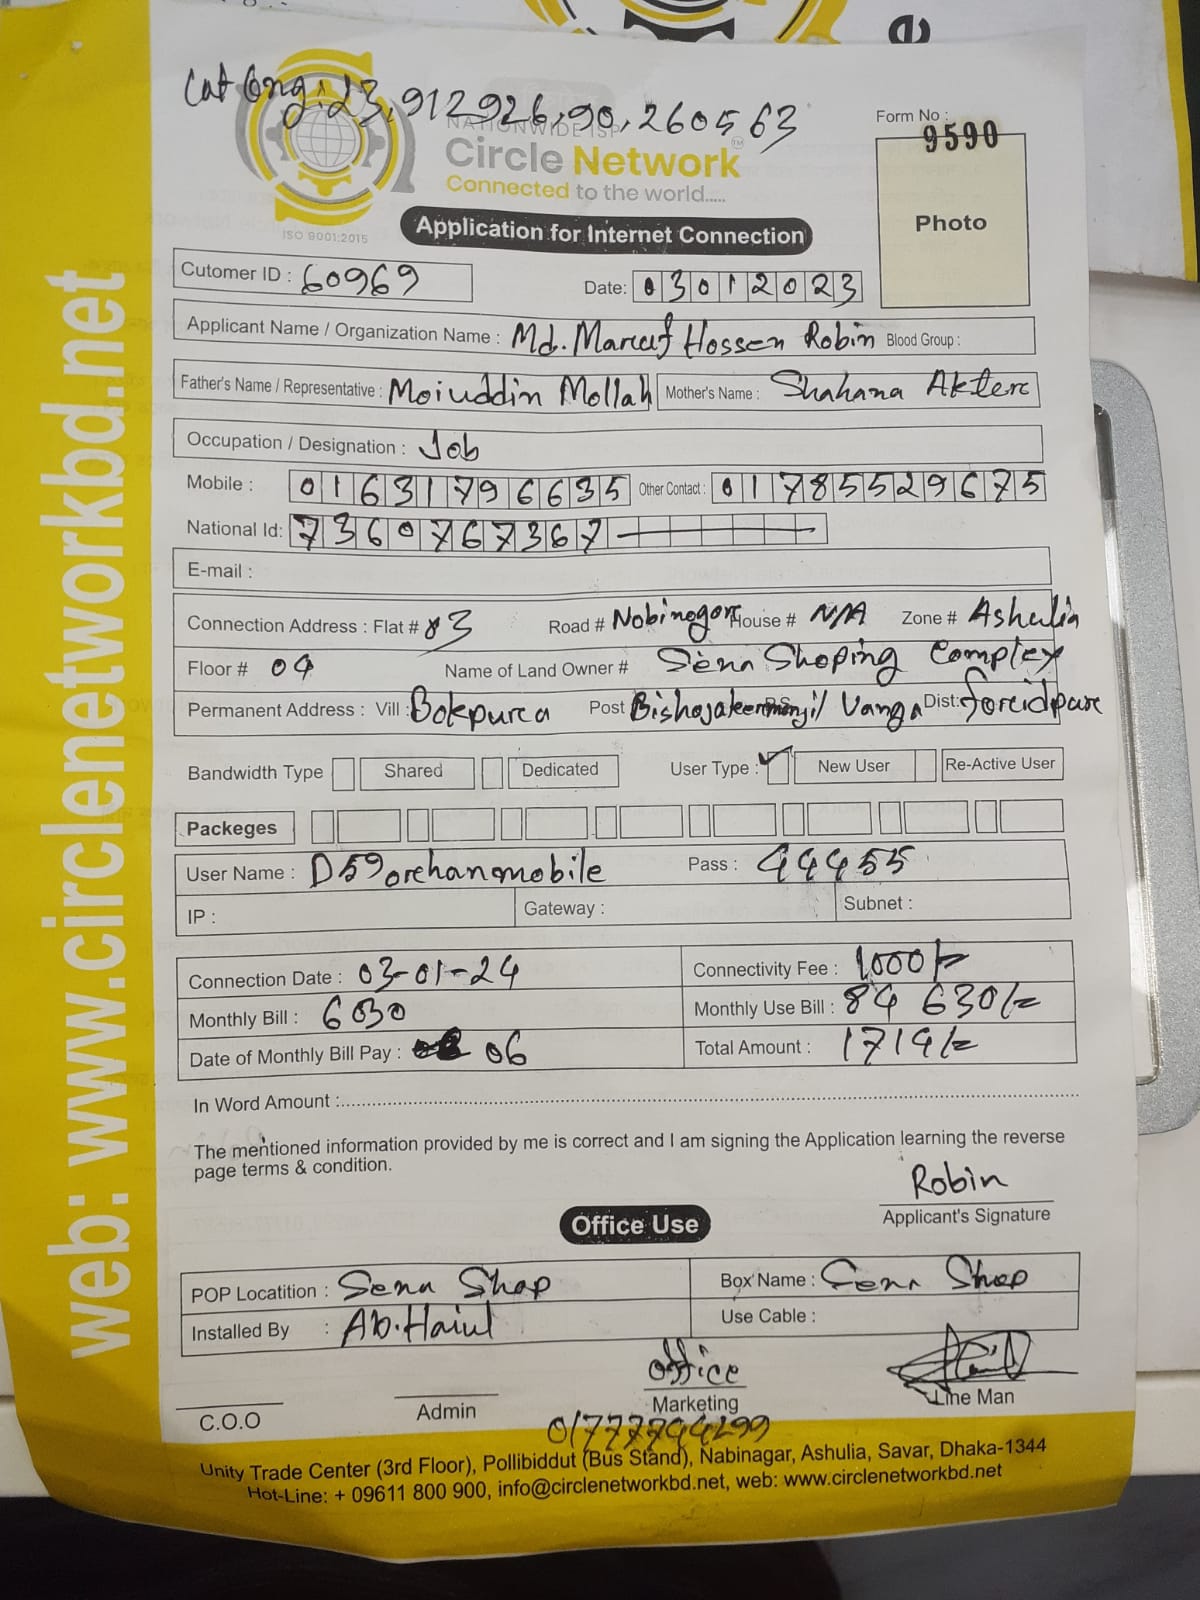 Cat Long: 23,912926,90,260563
NATIONWIDE ISP
Form No :
9590
Circle Network™
Connected to the world.....
Photo
ISO 9001:2015
Application for Internet Connection
Cutomer ID : 60969
Date: 03012023
Applicant Name / Organization Name : Md. Maruf Hossen Robin Blood Group :
Father's Name / Representative : Moiuddin Mollah Mother's Name : Shahana Akter
Occupation / Designation : Job
Mobile : 01631796635 Other Contact : 01785529675
National Id: 7360767367
E-mail :
Connection Address : Flat # 03 Road # Nobinogor House # N/A Zone # Ashulia
Floor # 04 Name of Land Owner # Sena Shoping Complex
Permanent Address : Vill : Bokpura Post Vanga Dist: foridpur
Bandwidth Type Shared Dedicated User Type : ✓ New User Re-Active User
Packeges
User Name : D59orchanmobile Pass : 44455
IP : Gateway : Subnet :
Connection Date : 03-01-24 Connectivity Fee : 1000/-
Monthly Bill : 630 Monthly Use Bill : 84 630/=
Date of Monthly Bill Pay : 06 Total Amount : 1714/=
In Word Amount :
The mentioned information provided by me is correct and I am signing the Application learning the reverse
page terms & condition.
Robin
Applicant's Signature
Office Use
POP Locatition : Sena Shop Box Name : Sena Shop
Installed By : Ab. Haiul Use Cable :
office
C.O.O Admin Marketing Line Man
01777794299
Unity Trade Center (3rd Floor), Pollibiddut (Bus Stand), Nabinagar, Ashulia, Savar, Dhaka-1344
Hot-Line: + 09611 800 900, info@circlenetworkbd.net, web: www.circlenetworkbd.net
web: www.circlenetworkbd.net